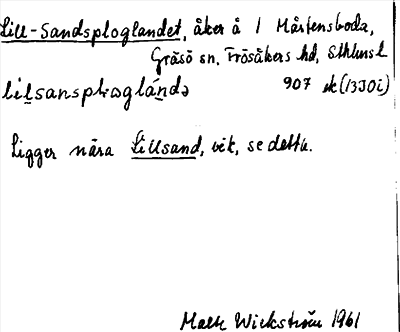 Lill-Sandsploglandet, åker å 1 Mårtensboda,
Gräsö sn, Frösåkers hd, Sthlms l
907 ek (13J0i)
Ligger nära Lillsand, vik, se detta.
Wickström 1961